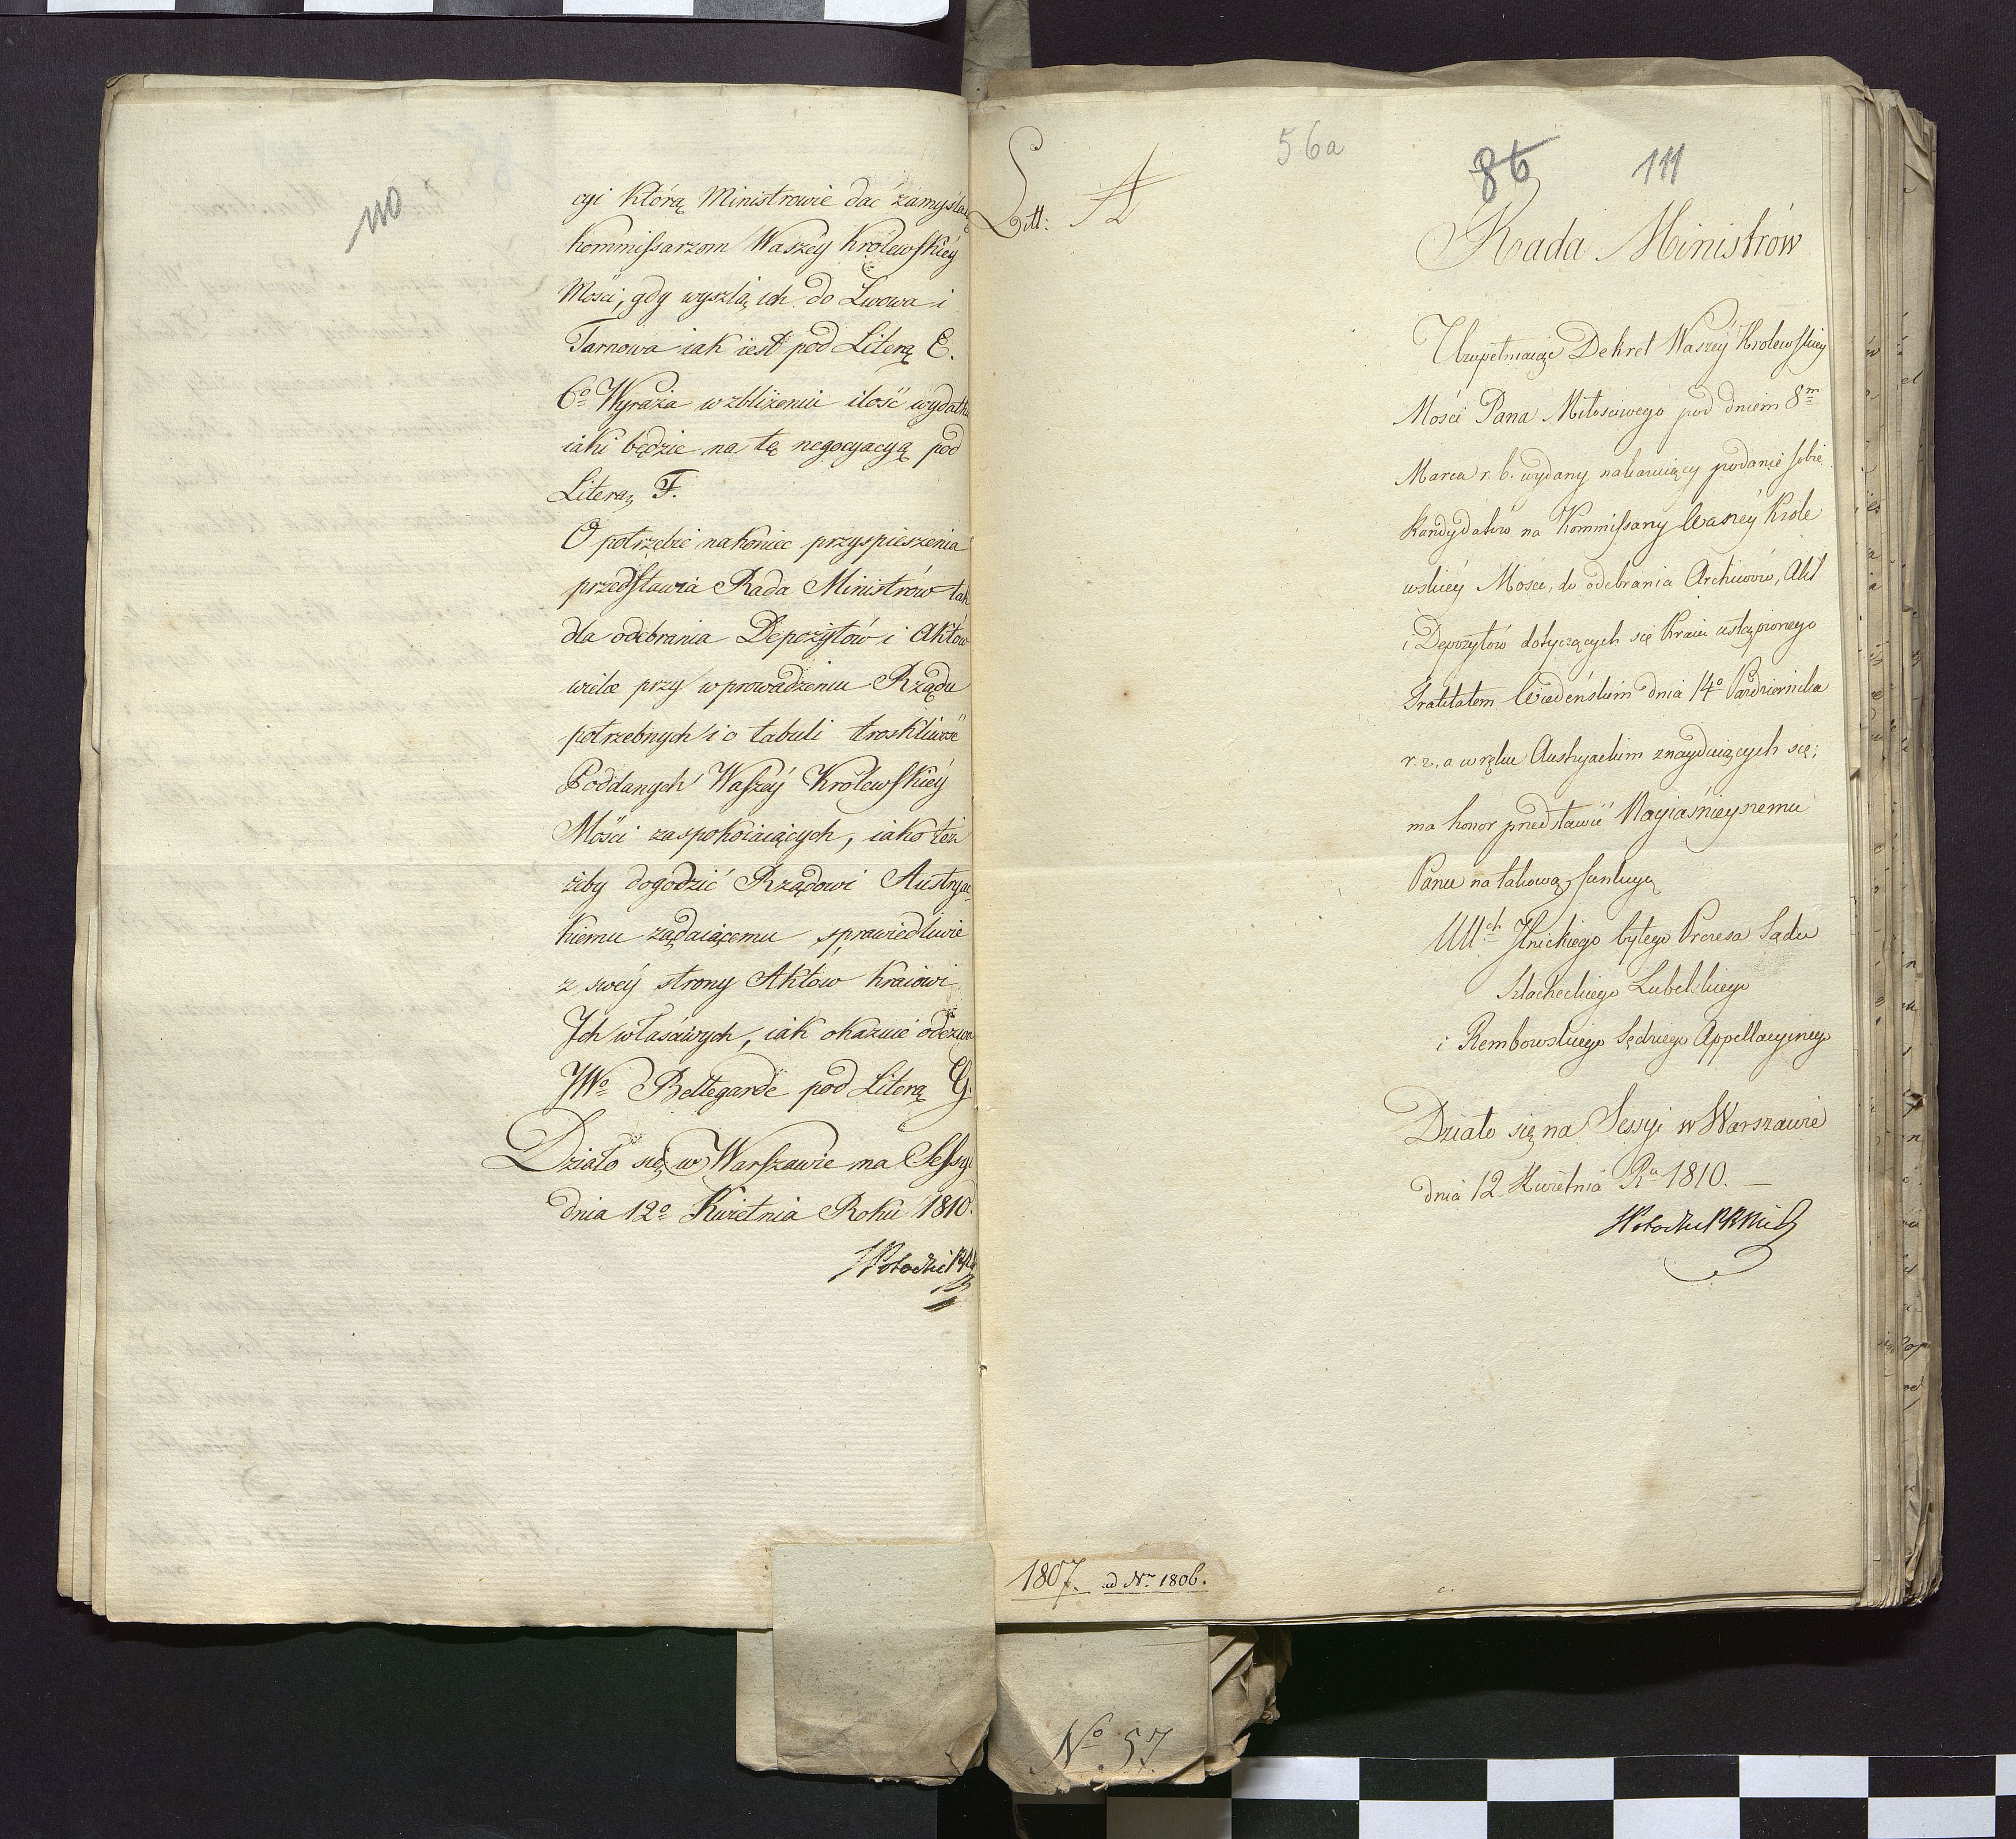 110
cyi którą Ministrowie dać zamyślaią
Kommissarzom Waszey Królewskiéy
Mości, gdy wyszlą ich do Lwowa i
Tarnowa iak iest pod Literą E.
6o Wyraża w zbliżeniu ilość wydatku
iaki będzie na tę negocyacyą pod
Literą F.
O potrzebie nakoniec przyspieszenia
przedstawia Rada Ministrów tak
dla odebrania Depozytów i Aktów
wiele przy wprowadzeniu Rządu
potrzebnych i o tabuli troskliwość
Poddanych Waszéy Królewskiéy
Mości zaspokoiaiących, iako też
żeby dogodzić Rządowi Austryac-
kiemu żądaiącemu sprawiedliwie
z swéy strony Aktów Kraiowi
Ich właściwych, iak okazuie odezwa
JWo Bellegarde pod Literą G.
Działo się w Warszawie na Sessyi
dnia 12o Kwietnia Roku 1810.
Litt: A
56a
86
111
Rada Ministrów
Uzupełniaiąc Dekret Waszéy Krolewskiey
Mości Pana Miłościwego pod dniem 8m
Marca r. b. wydany nakazuiący podanie sobie
Kandydatów na Kommissarzy Waszéy Krole
wskiéy Mości, do odebrania Archiwów, Akt
i Depozytów dotyczących się Kraiu ustąpionego
Traktatem Wiedeńskim dnia 14o Października
r. z. a w ręku Austryackim znayduiących się;
ma honor przedstawić Nayiaśnieyszemu
Panu na takową funkcyą
UUch Ilnickiego byłego Prezesa Sądu
Szlacheckiego Lubelskiego
i Rembowskiego Sędziego Appellacyinego
Działo się na Sessyi w Warszawie
dnia 12 Kwietnia Ru 1810. —
1807. ad Nr. 1806.
No 57.